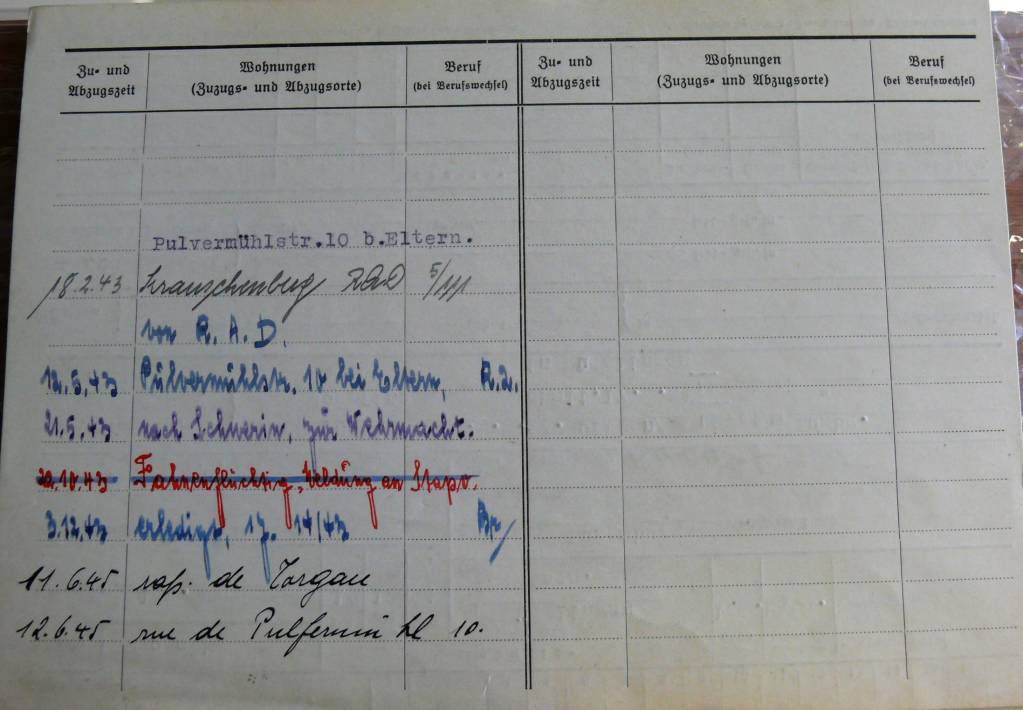 Zu= und Abzugszeit
Wohnungen
(Zuzugs= und Abzugsorte)
Beruf
(bei Berufswechsel)
Zu= und Abzugszeit
Wohnungen
(Zuzugs= und Abzugsorte)
Beruf
(bei Berufswechsel)
Pulvermühlstr.10 b.Eltern.
18.2.43 RAD
von R. A. D.
12.5.43 Pulvermühlstr. 10 bei Eltern,
21.5.43 nach Schwerin, zur Wehrmacht.
20.10.43 Fahnenflüchtig, Meldung an Stapo.
3.12.43 erledigt, 14/43
11.6.45 rap. de Torgau
12.6.45 rue de 10.